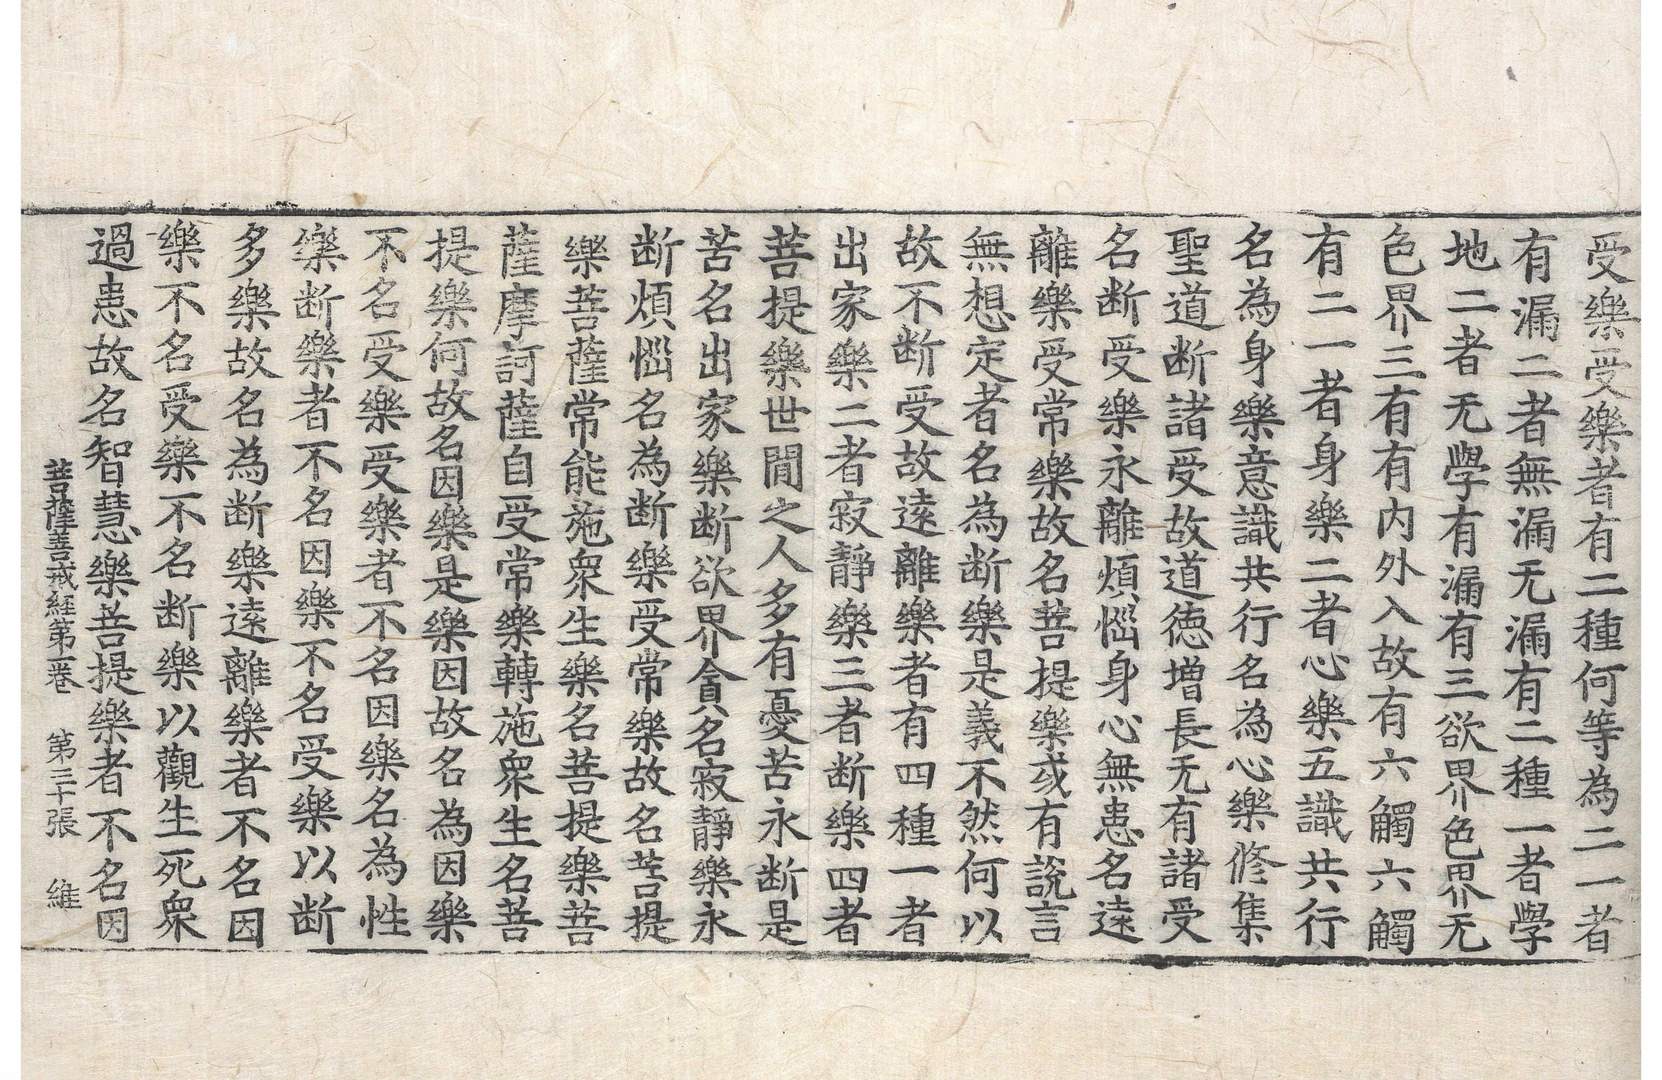 受樂受樂者有二種何等為二一者
有漏二者無漏无漏有二種一者學
地二者无學有漏有三欲界色界无
色界三有有內外入故有六觸六觸
有二一者身樂二者心樂五識共行
名為身樂意識共行名為心樂脩集
聖道斷諸受故道徳增長无有諸受
名断受樂永離煩惱身心無患名遠
離樂受常樂故名菩提樂或有說言
無想定者名為断樂是義不然何以
故不断受故遠離樂者有四種一者
出家樂二者寂靜樂三者断樂四者
菩提樂世間之人多有憂苦永断是
苦名出家樂断欲界貪名寂靜樂永
断煩惱名為断樂受常樂故名菩提
樂菩薩常能施衆生樂名菩提樂菩
薩摩訶薩自受常樂轉施衆生名菩
提樂何故名因樂是樂因故名為因樂
不名受樂受樂者不名因樂名為性
樂断樂者不名因樂不名受樂以断
多樂故名為断樂遠離樂者不名因
樂不名受樂不名断樂以觀生死衆
過患故名智慧樂菩提樂者不名因
菩薩善戒経第一卷 第三十張 維